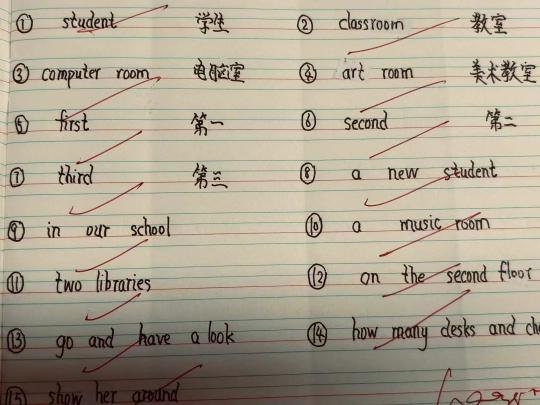 ① student 学生 ② classroom 教室
③ computer room 电脑室 ④ art room 美术教室
⑤ first 第一 ⑥ second 第二
⑦ third 第三 ⑧ a new student
⑨ in our school ⑩ a music room
⑪ two libraries ⑫ on the second floor
⑬ go and have a look ⑭ how many desks and
⑮ show her around